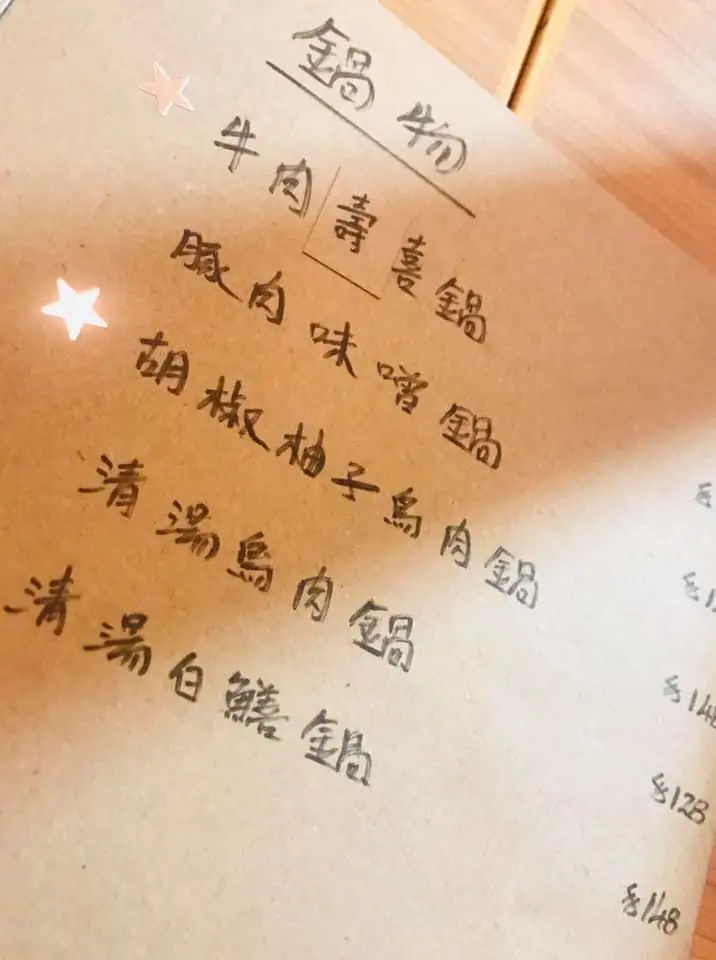 鍋物
牛肉壽喜鍋 $
豚肉味噌鍋 $1
胡椒柚子鳥肉鍋 $14
清湯鳥肉鍋 $128
清湯白鱔鍋 $148